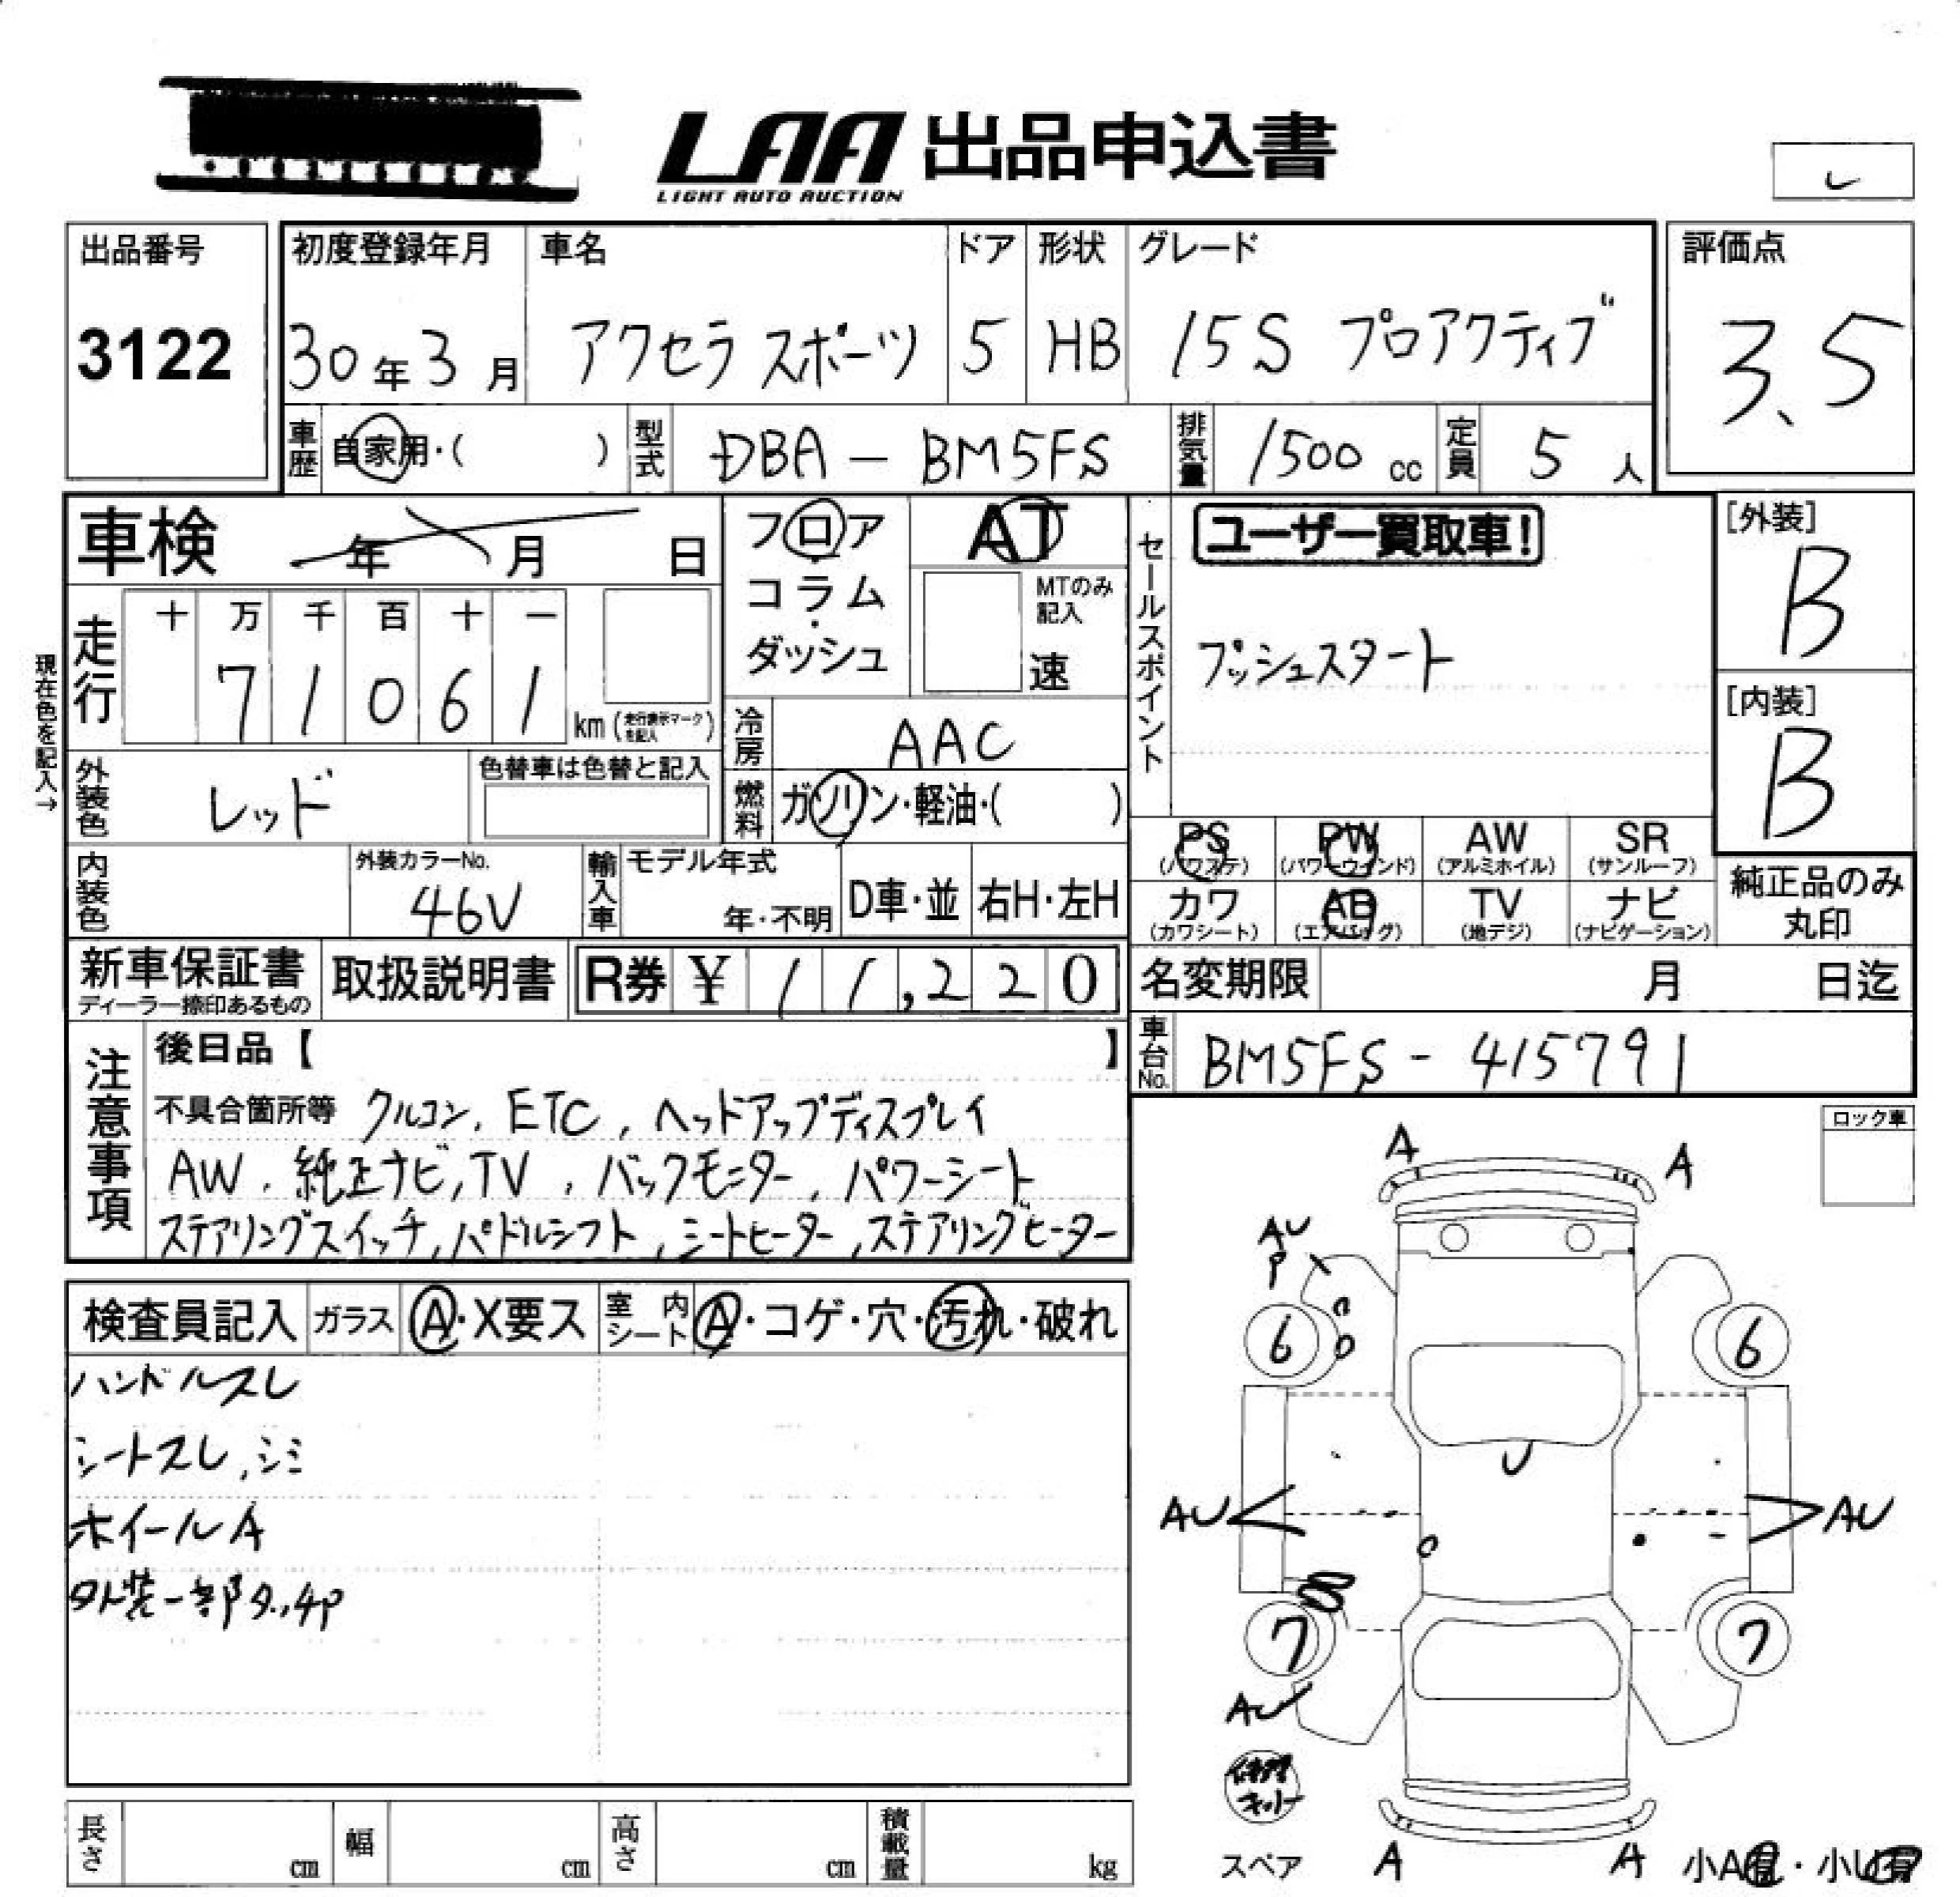 LAA 出品申込書
LIGHT AUTO AUCTION
出品番号
3122
初度登録年月
30年3月
車名
アクセラ スポーツ
ドア
5
形状
HB
グレード
15S プロアクティブ
評価点
3.5
車歴 自家用・( )
型式 DBA-BM5FS
排気量 1500 cc
定員 5 人
車検 年 月 日
現在色を記入→
走行
十 万 千 百 十 一
7 1 0 6 1 km (走行表示マークを記入)
フロア
コラム
ダッシュ
AT
MTのみ記入
速
冷房 AAC
燃料 ガソリン・軽油・( )
セールスポイント
ユーザー買取車!
プッシュスタート
[外装]
B
[内装]
B
外装色 レッド
色替車は色替と記入
内装色
外装カラーNo.
46V
輸入車
モデル年式
年・不明
D車・並
右H・左H
PS (パワステ)
PW (パワーウィンド)
AW (アルミホイル)
SR (サンルーフ)
カワ (カワシート)
AB (エアバッグ)
TV (地デジ)
ナビ (ナビゲーション)
純正品のみ
丸印
新車保証書
ディーラー捺印あるもの
取扱説明書
R券 ¥ 11,220
名変期限 月 日迄
車台No. BM5FS-415791
注意事項
後日品【 】
不具合箇所等 クルコン、ETC、ヘッドアップディスプレイ
AW、純正ナビ、TV、バックモニター、パワーシート
ステアリングスイッチ、パドルシフト、シートヒーター、ステアリングヒーター
ロック車
検査員記入
ガラス A・X要ス
室内シート A・コゲ・穴・汚れ・破れ
ハンドルスレ
シートスレ、シミ
ホイールA
A
A
AU
P
6
6
U
AU
AU
7
7
AU
修理キット
スペア
A
A
小A・小U
長さ cm
幅 cm
高さ cm
積載量 kg